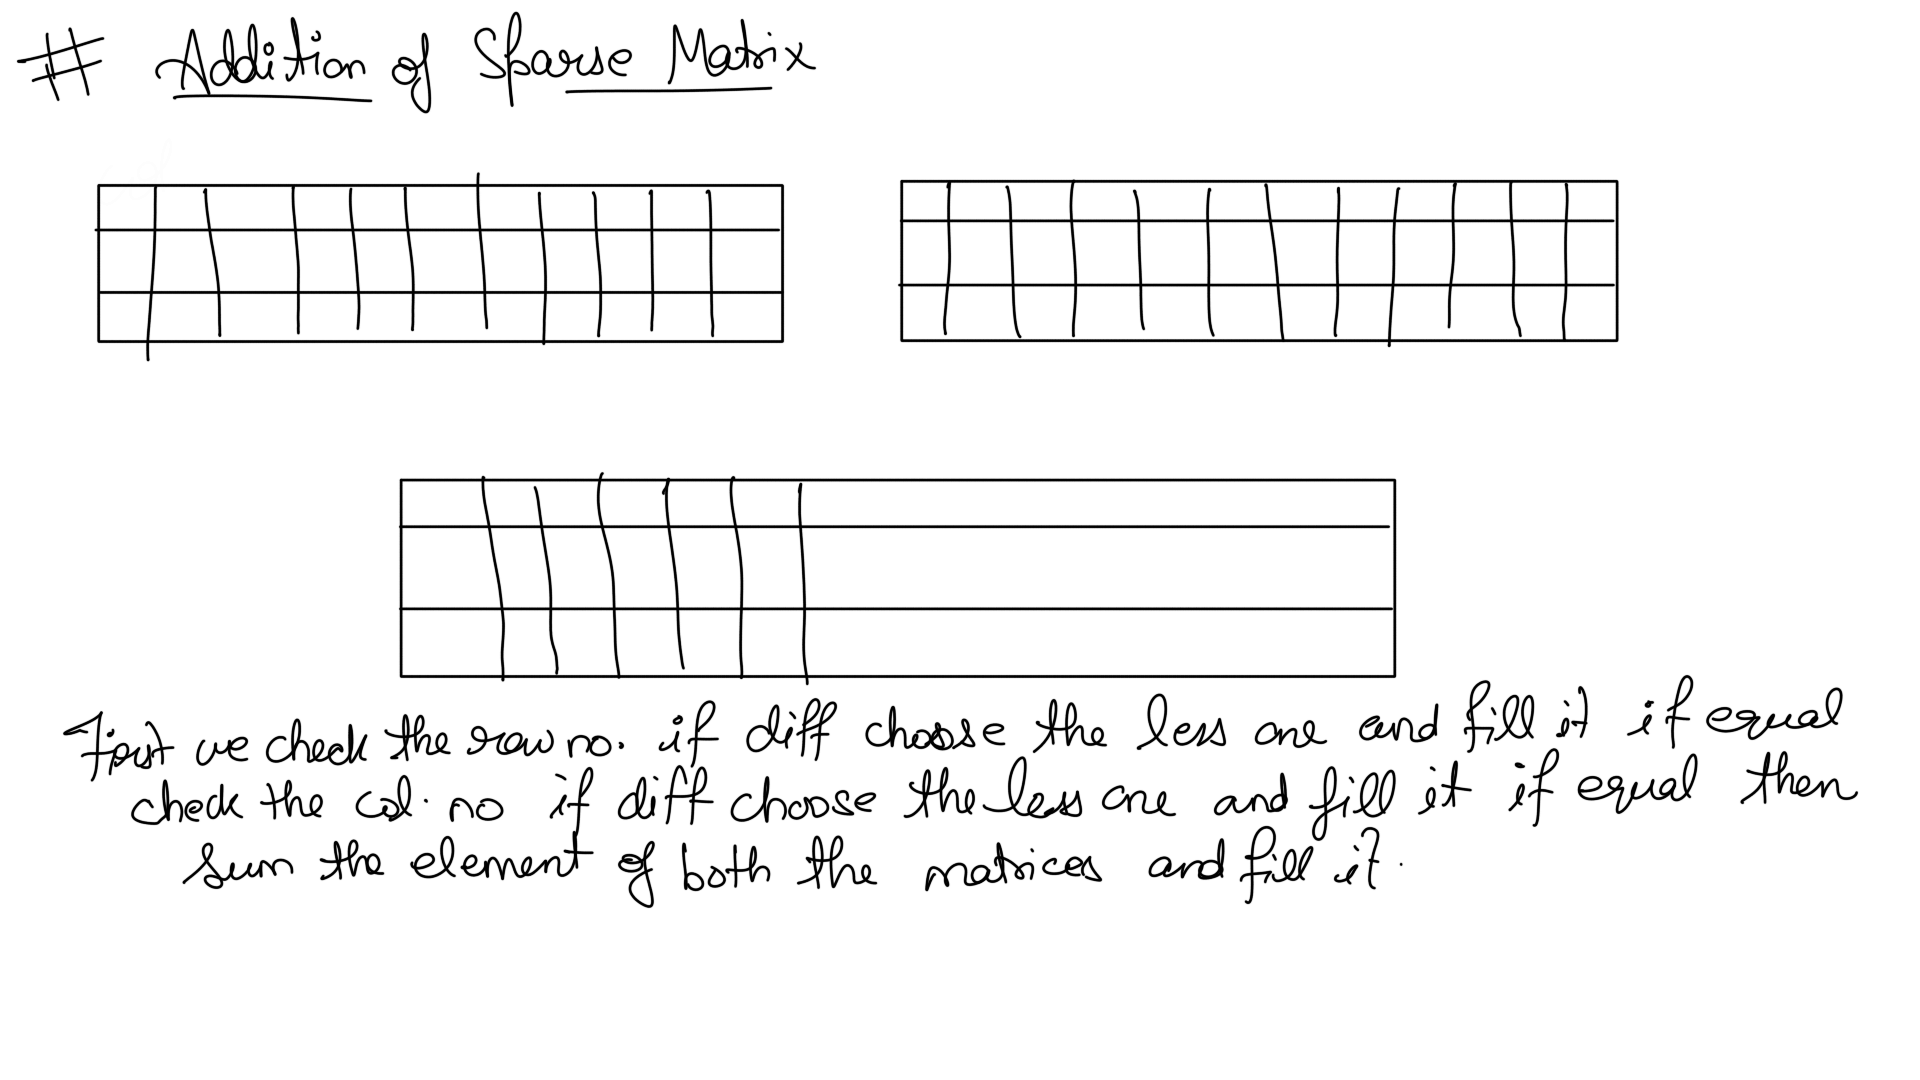 # Addition of Sparse Matrix
First we check the row no. if diff choose the less one and fill it if equal
check the col. no if diff choose the less one and fill it if equal then
sum the element of both the matrices and fill it.